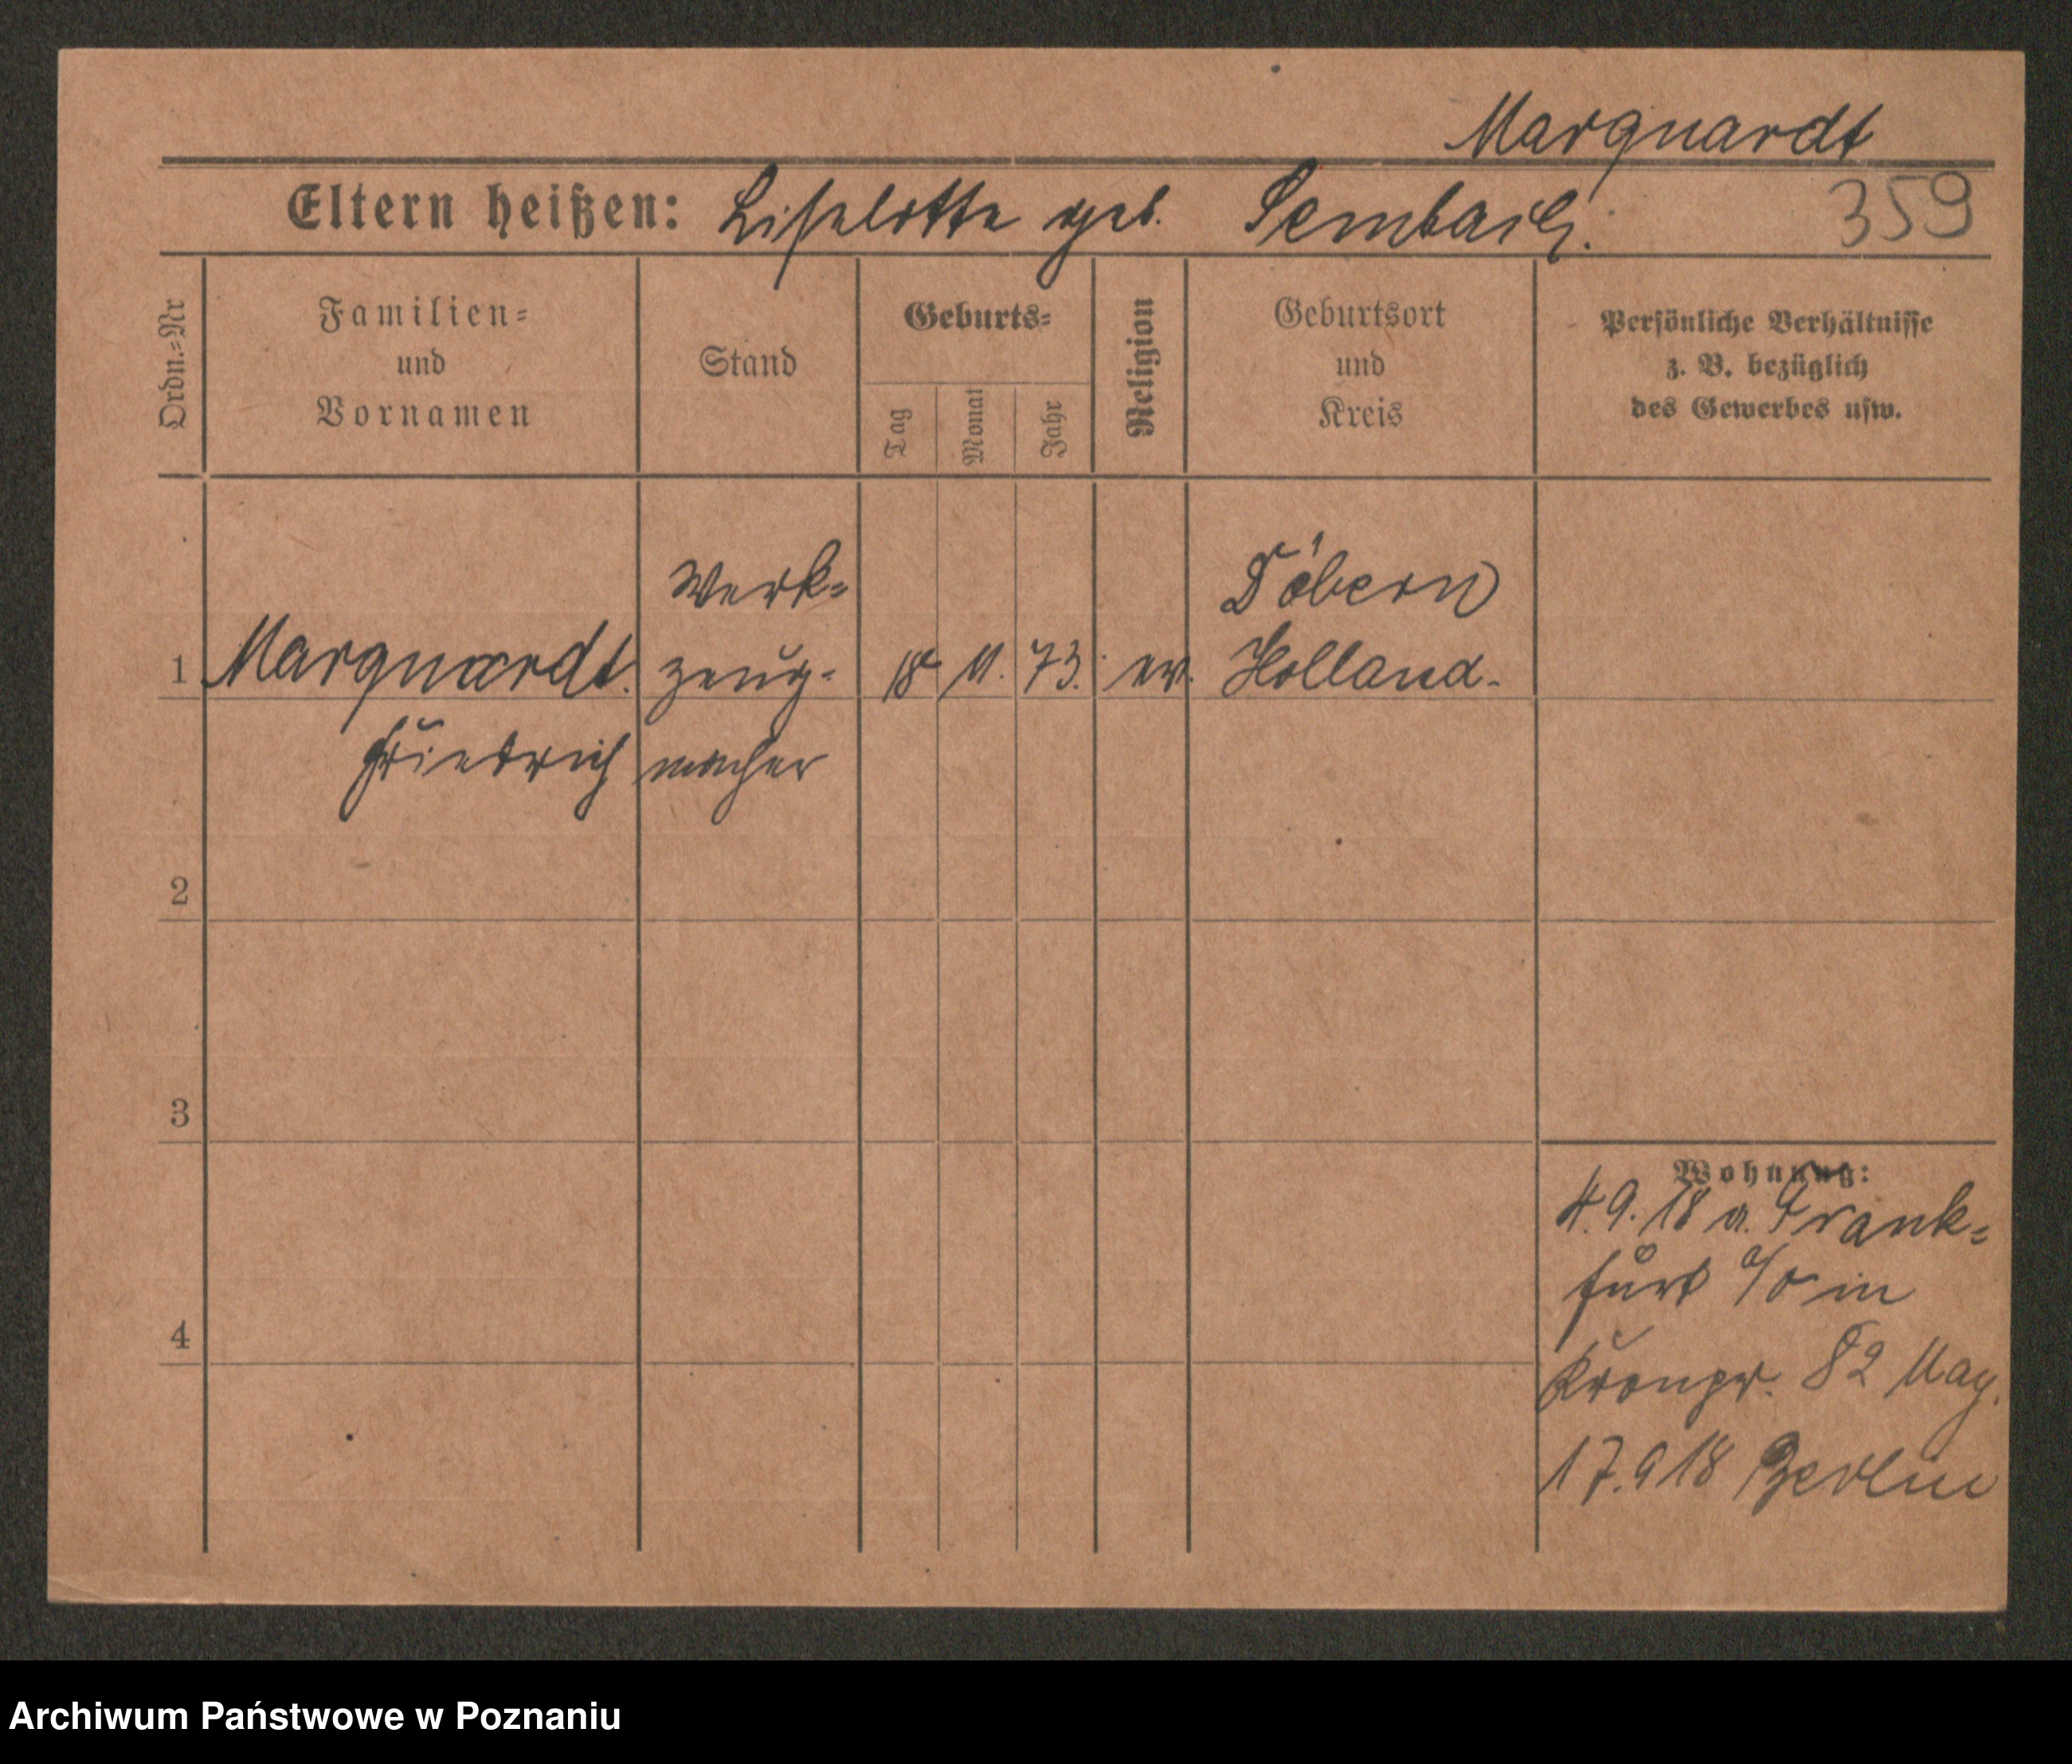 Marquardt
Eltern heißen: Liselotte geb.
359
Ordn.=Nr
Familien=
und
Vornamen
Stand
Geburts=
Tag
Monat
Jahr
Religion
Geburtsort
und
Kreis
Persönliche Verhältnisse
z. B. bezüglich
des Gewerbes usw.
1
Marquardt.
Friedrich
Werk=
zeug=
macher
18. 11. 73. ev.
Döbern
Holland.
2
3
4
Wohnung:
4.9.18 a. Frank=
furt a/o in
Kronpr. 82 Mag.
17.9 18 Berlin
Archiwum Państwowe w Poznaniu